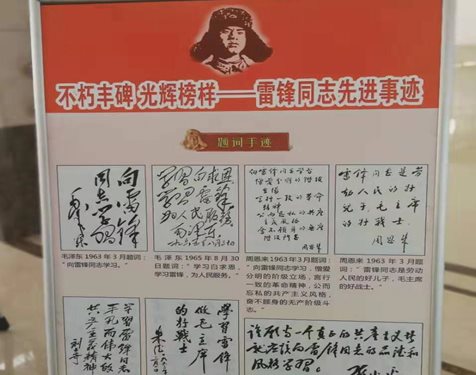 不朽丰碑 光辉榜样——雷锋同志先进事迹
题词手迹
向雷锋
同志学习
毛泽东
学习白求恩
学习雷锋
为人民服务
毛泽东
向雷锋同志学习
憎爱分明的阶级
立场
言行一致的革命
精神
公而忘私的共产
主义风格
奋不顾身的无产
阶级斗志
周恩来
雷锋同志是劳
动人民的好
儿子，毛主席
的好战士
周恩来
毛泽东1963年3月题词：
“向雷锋同志学习。
毛泽东1965年8月30
日题词：“学习白求恩，
学习雷锋，为人民服务。
周恩来1963年3月题词：
“向雷锋同志学习，憎爱
分明的阶级立场，言行
一致的革命精神，公而
忘私的共产主义风格，
奋不顾身的无产阶级斗
志。
周恩来 1963年3月题
词：“雷锋同志是劳动
人民的好儿子，毛主席
的好战士。
学习雷锋同志
平凡而伟大的
共产主义精神
刘少奇
学习雷锋
做毛主席
的好战士
朱德
谁愿当一个真正的共产主义者
就应该向雷锋同志的品德和
风格学习
邓小平